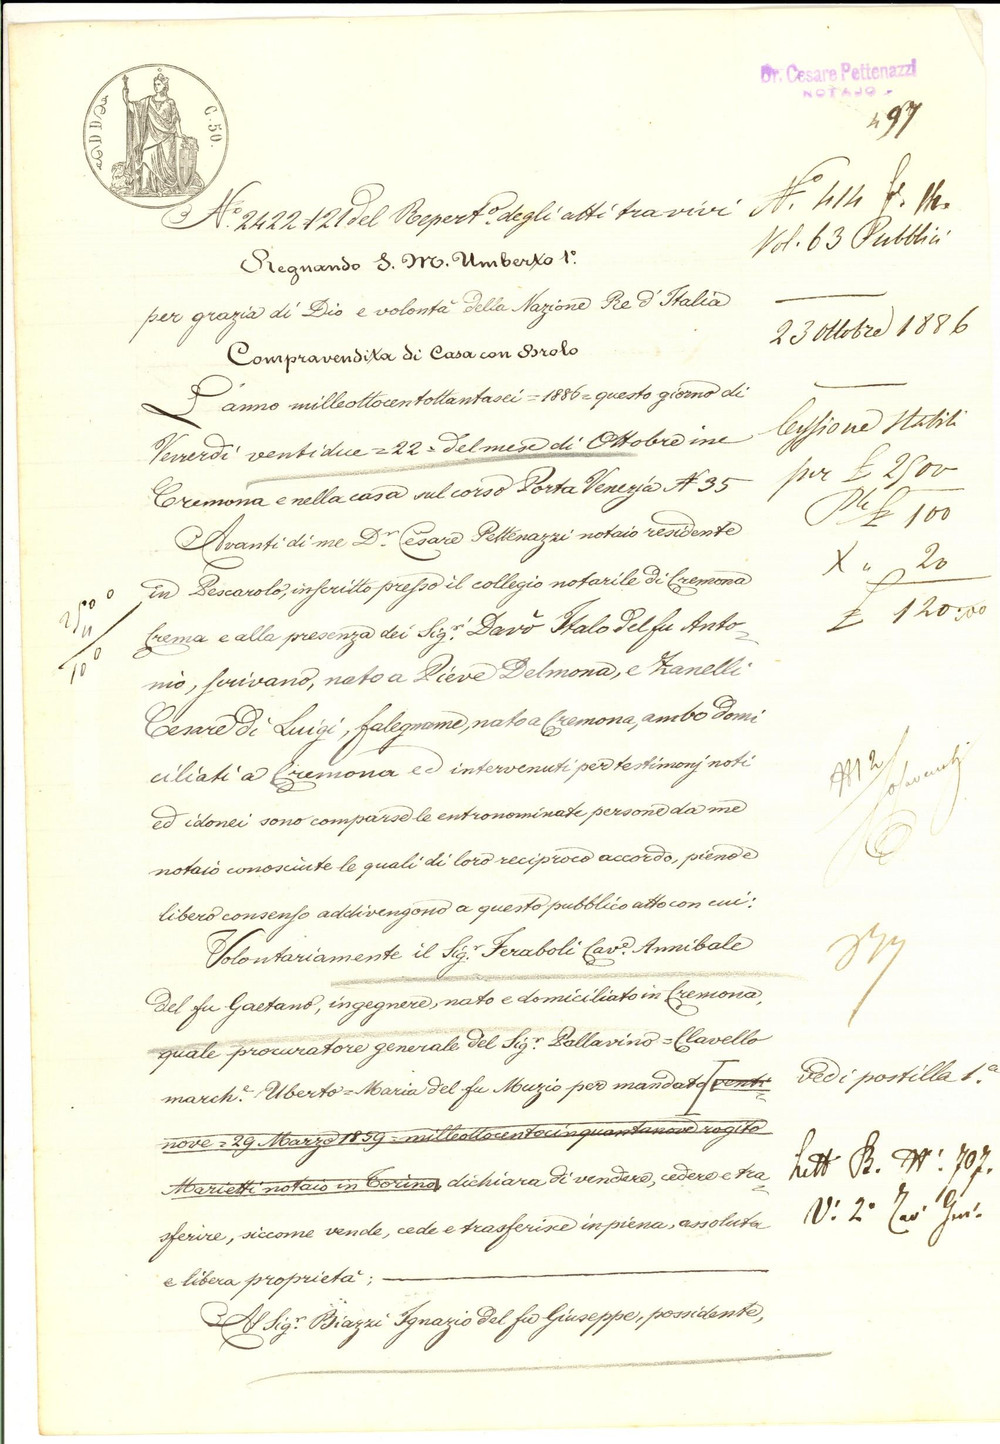 C. 50.
Dr. Cesare Pettenazzi
NOTAJO
497
N.º 2422+121 del Repert.º degli atti tra vivi
Nº. 414
Vol. 63 Pubblici
Regnando S. M. Umberto 1º.
per grazia di Dio e volontà della Nazione Re d'Italia
23 ottobre 1886
Compravendita di Casa con Brolo
L'anno milleottocentottantasei = 1886 = questo giorno di
Venerdì ventidue = 22 = del mese di Ottobre in
Cremona e nella casa sul corso Porta Venezia Nº 35
Cessione stabili
per £ 2500
£ 100
X " 20
£ 120.00
Avanti di me D.r Cesare Pettenazzi notaio residente
in Pescarolo, inscritto presso il collegio notarile di Cremona
Crema e alla presenza dei Sig.ri Davò Italo del fu Anto=
nio, scrivano, nato a Pieve Delmona, e Zanelli
Cesare di Luigi, falegname, nato a Cremona, ambo domi
ciliati a Cremona ed intervenuti per testimonj noti
ed idonei sono comparse le entronominate persone da me
notaio conosciute le quali di loro reciproco accordo, pieno e
libero consenso addivengono a questo pubblico atto con cui:
Volontariamente il Sig.r Feraboli Cav.e Annibale
del fu Gaetano, ingegnere, nato e domiciliato in Cremona,
quale procuratore generale del Sig.r Pallavino = Clavello
march.e Uberto = Maria del fu Muzio per mandato venti
vedi postilla 1.a
nove = 29 Marzo 1859 = milleottocentocinquantanove rogito
Marietti notaio in Torino, dichiara di vendere, cedere e tra=
sferire, siccome vende, cede e trasferisce in piena, assoluta
e libera proprietà;
Lett B. Nº. 707.
V. 2º
Al Sig.r Biazzi Ignazio del fu Giuseppe, possidente,